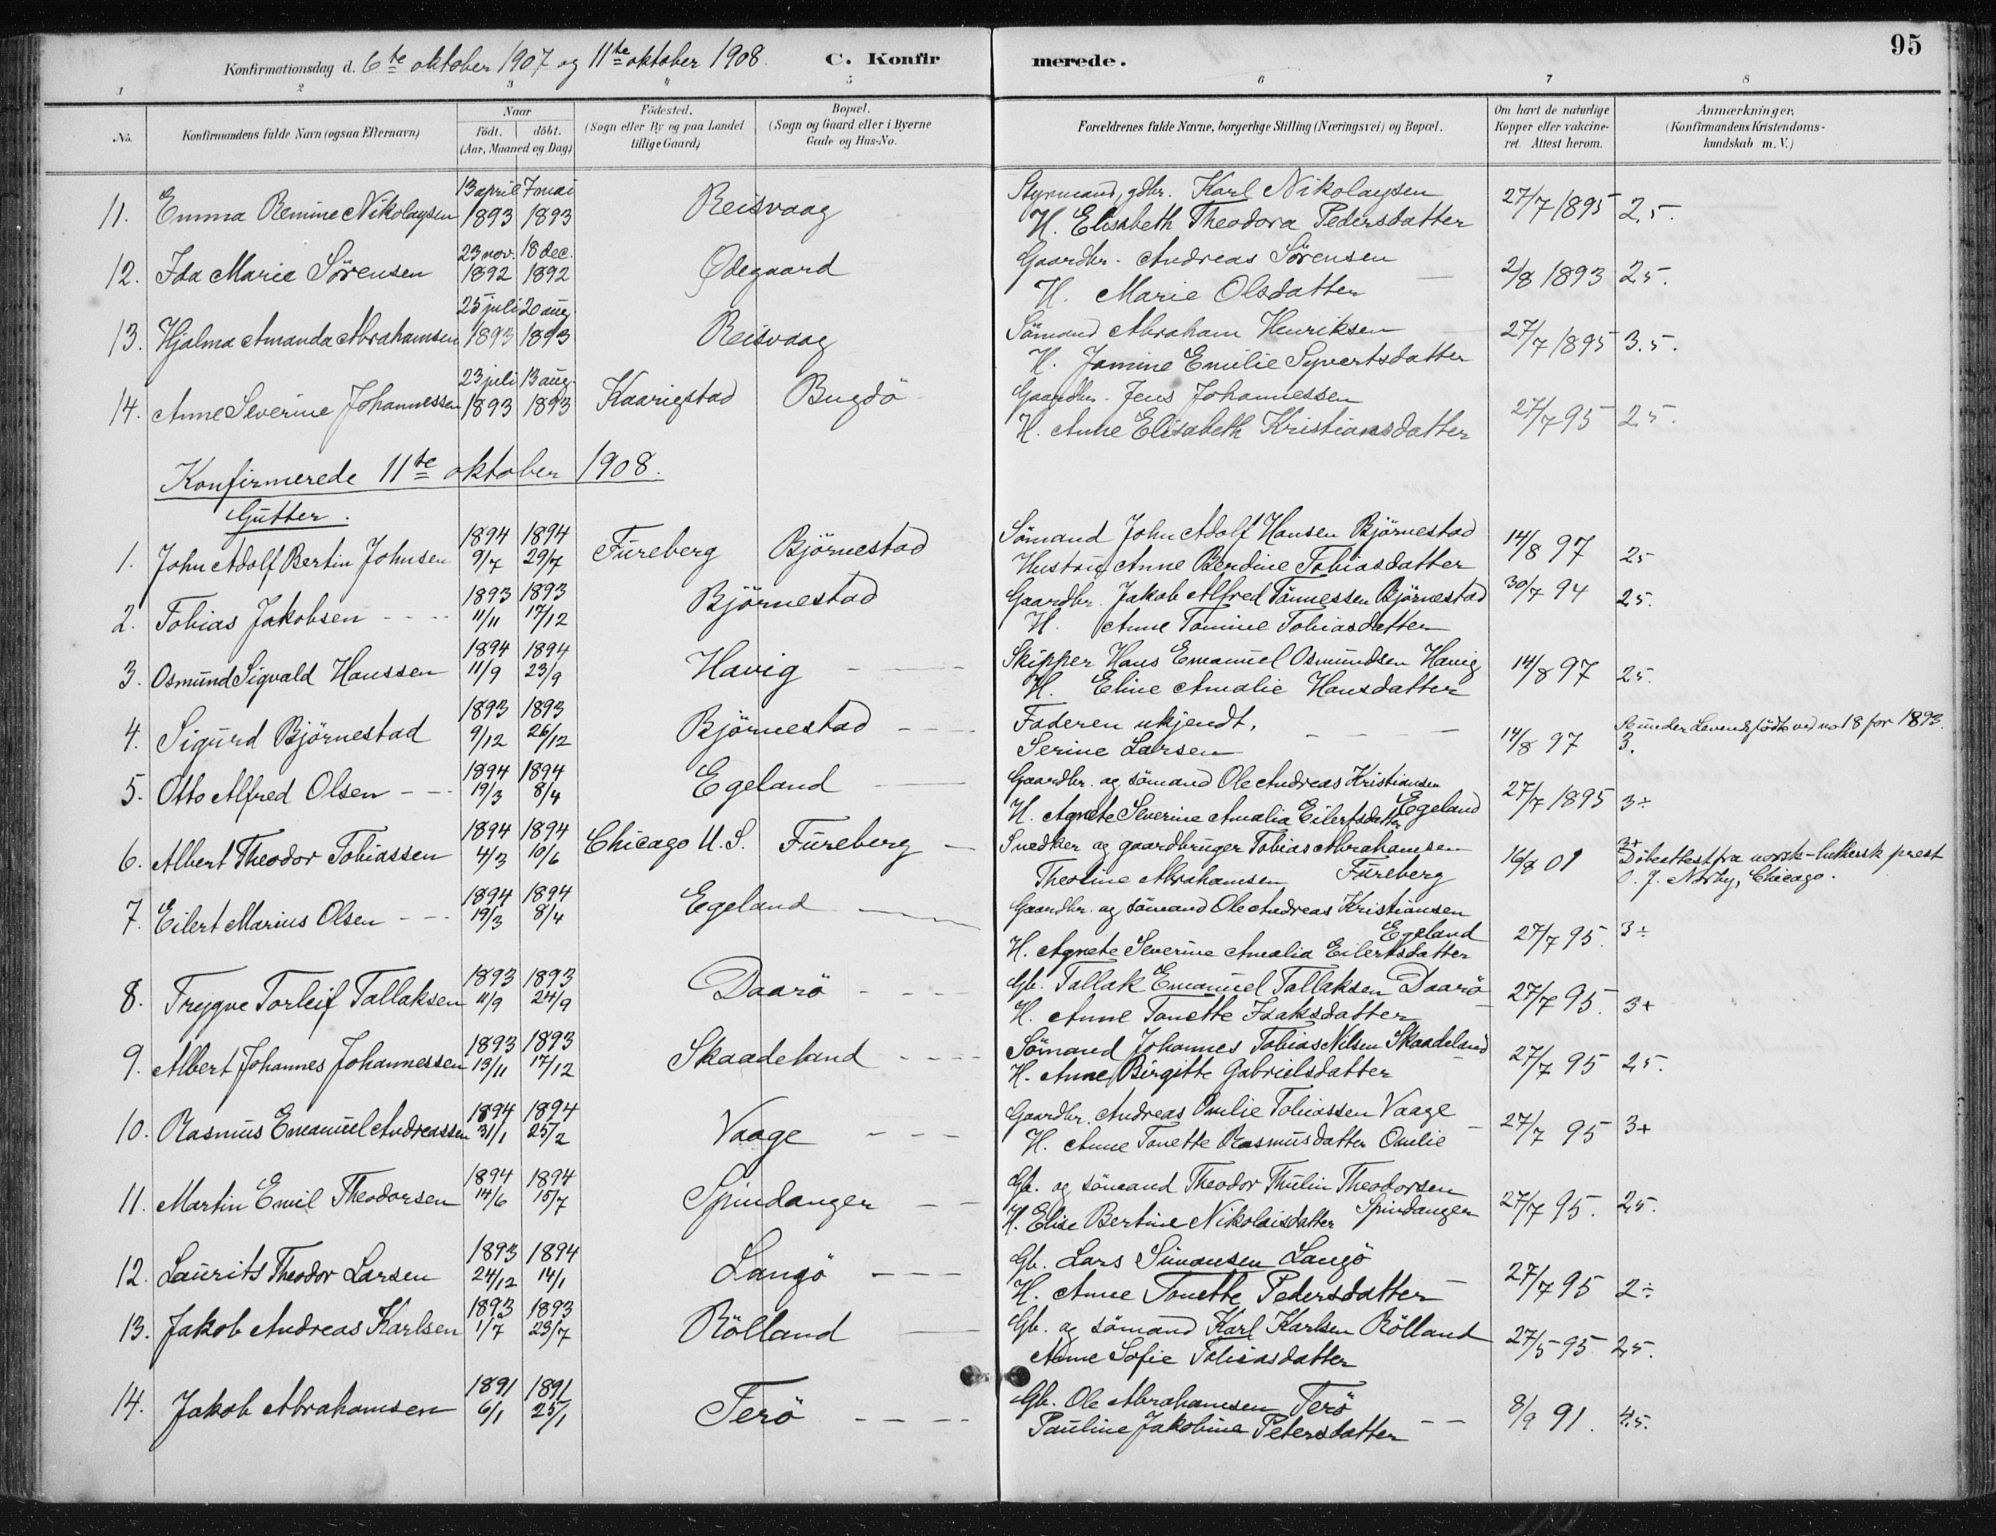 95
Konfirmationsdag d. 6te oktober 1907 og 11te oktober 1908. C. Konfirmerede.
1 2 3 4 5 6 7 8
No. Konfirmandens fulde Navn (ogsaa Efternavn) Naar födt. döbt. (Aar, Maaned og Dag) Födested. (Sogn eller By og paa Landet tillige Gaard) Bopæl. (Sogn og Gaard eller i Byerne Gade og Hus-No. Forældrenes fulde Navne, borgerlige Stilling (Næringsvei) og Bopæl. Om havt de naturlige Kopper eller vakcineret. Attest herom. Anmærkninger. (Konfirmandens Kristendomskundskab m. V.)
13 april 7 mai Styrmand, gdbr. Karl Nikolaysen
11. Emma Remine Nikolaysen 1893 1893 Reisvaag H. Elisabeth Theodora Pedersdatter 27/7 1895 2,5.
23 nov. 18 dec. Gaardbr. Andreas Sörensen
12. Ida Marie Sörensen 1892 1892 Ödegaard H. Marie Olsdatter 2/8 1893 2,5.
25 juli 20 aug. Sömand Abraham Henriksen
13. Hjalma Amanda Abrahamsen 1893 1893 Reisvaag H. Jamine Emilie Syvertsdatter 27/7 1895 3.5.
23 juli 13 aug. Gaardbr. Jens Johannessen
14. Anne Severine Johannessen 1893 1893 Kaarigstad Bugdö H. Anne Elisabeth Kristiansdatter 27/7 95 2,5.
Konfirmerede 11te oktober 1908.
Gutter.
1894 1894 Sömand John Adolf Hansen Björnestad
1. John Adolf Bertin Johnsen 9/7 29/7 Fureberg Björnestad Hustru Anne Berdine Tobiasdatter 14/8 97 2,5
1893 1893 Gaardbr. Jakob Alfred Tönnessen Björnestad
2. Tobias Jakobsen 11/11 17/12 Björnestad H. Anne Tomine Tobiasdatter 30/7 94 2,5.
1894 1894 Skipper Hans Emanuel Osmundsen Havig
3. Osmund Sigvald Hanssen 11/9 23/9 Havig H. Eline Amalie Hansdatter 14/8 97 2,5.
1893 1893 Faderen ukjendt.
4. Sigurd Björnestad 9/12 26/12 Björnestad Serine Larsen 14/8 97 3. under Levendefödte ved no 18 for 1893.
1894 1894 Gaardbr. og sömand Ole Andreas Kristiansen Egeland
5. Otto Alfred Olsen 19/3 8/4 Egeland H. Agnete Severine Amalia Eilertsdatter 27/7 1895 3÷
1894 1894 Snedker og gaardbruger Tobias Abrahamsen Fureberg
6. Albert Theodor Tobiassen 4/3 10/6 Chicago U.S. Fureberg Theoline Abrahamsen 16/8 01 3+ Döbeattest fra norsk-luthersk prest O. J. Norby, Chicago.
1894 1894 Gaardbr. og sömand Ole Andreas Kristiansen Egeland
7. Eilert Marius Olsen 19/3 8/4 Egeland H. Agnete Severine Amalia Eilertsdatter 27/7 95. 3÷
1893 1893 Gb. Tallak Emanuel Tallaksen Daarö
8. Trygve Torleif Tallaksen 11/9 24/9 Daarö H. Anne Tonette Isaksdatter 27/7 95. 3+
1893 1893 Sömand Johannes Tobias Nilsen Skaadeland
9. Albert Johannes Johannessen 13/11 17/12 Skaadeland H. Anne Birgitte Gabrielsdatter 27/7 95 2,5.
1894 1894 Gaardbr. Andreas Omlie Tobiassen Vaage
10. Rasmus Emanuel Andreassen 31/1 25/2 Vaage H. Anne Tonette Rasmusdatter Omlie 27/7 95 3+
1894 1894 Gb. og sömand Theodor Thulin Theodorsen Spindangen
11. Martin Emil Theodorsen 14/6 15/7 Spindangen H. Elise Bertine Nikolaisdatter 27/7 95. 2,5.
1893 1894 Gb. Lars Simonsen Langö
12. Laurits Theodor Larsen 24/12 14/1 Langö H. Anne Tonette Pedersdatter 27/7 95 2÷
1893 1893 Gb. og sömand Karl Karlsen Rölland
13. Jakob Andreas Karlsen 1/7 23/7 Rölland Anne Sofie Tobiasdatter 27/5 95 2,5.
1891 1891 Gb. Ole Abrahamsen Terö
14. Jakob Abrahamsen 6/1 25/1 Terö Pauline Jakobine Petersdatter 8/9 91. 4,5.